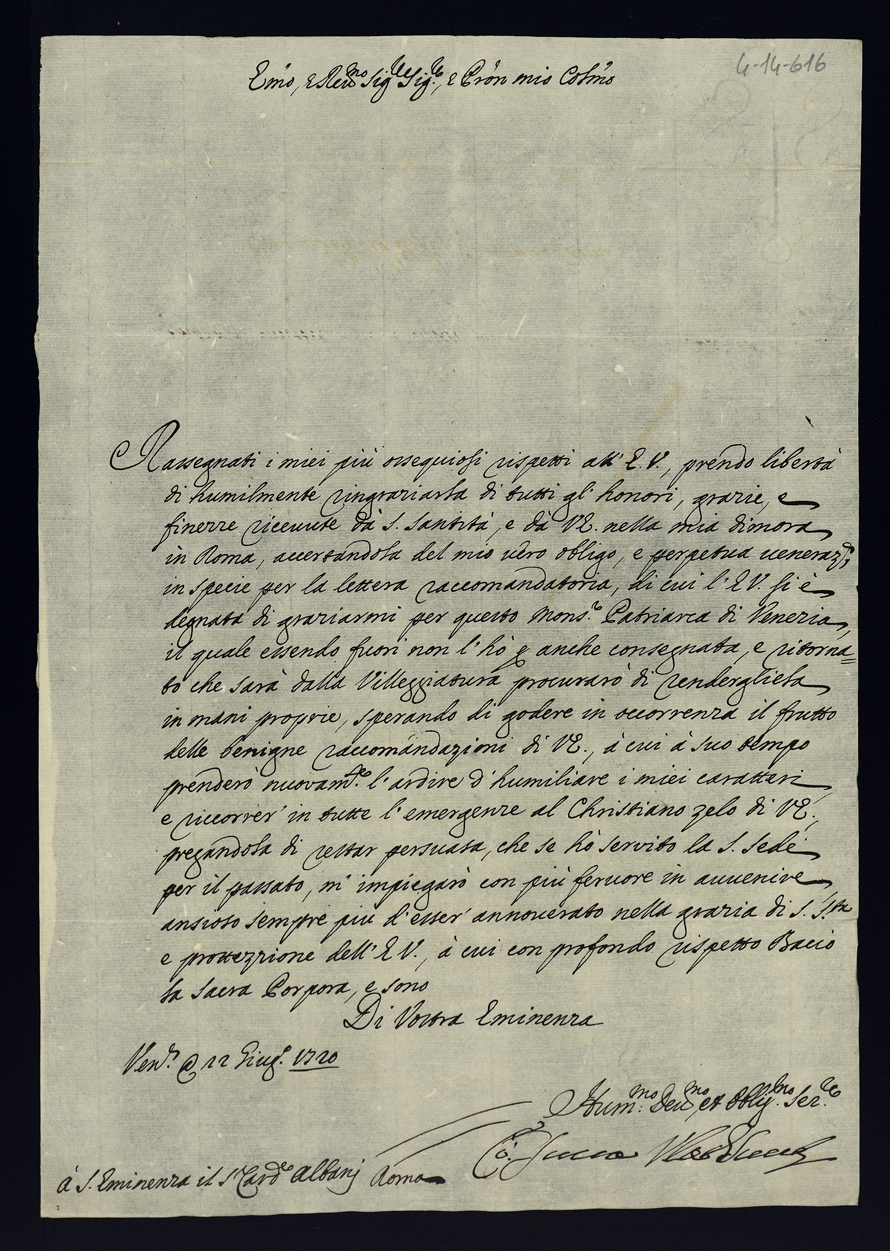 4-14-616
Em̃o, e Reu.mo Sig.re Sig.re, e Prõn mio Colm̃o
Rassegnati i miei più ossequiosi rispetti all' E.V., prendo libertà
di humilmente ringraziarla di tutti gl' honori, grazie, e
finezze riceuute dà S. Santità, e dà VE. nella mia dimora
in Roma, accertandola del mio vero obligo, e perpetua ueneraz.e,
in specie per la lettera raccomandatoria, di cui l' E.V. si è
degnata di graziarmi per questo Mons.r Patriarca di Venezia,
il quale essendo fuori non l' hò p anche consegnata, e ritorna=
to che sarà dalla Villeggiatura procurarò di rendergliela
in mani proprie, sperando di godere in occorrenza il frutto
delle benigne raccomandazioni di VE., à cui à suo tempo
prenderò nuovam.te l' ardire d' humiliare i miei caratteri
e riccorrer' in tutte l' emergenze al Christiano zelo di VE.,
pregandola di restar persuasa, che se hò seruito la S. Sede
per il passato, m' impiegarò con più feruore in auuenire
ansioso sempre più d' esser' annouerato nella grazia di S. S.tà
e protezzione dell' E.V., à cui con profondo rispetto Bacio
la Sacra Porpora, e sono
Di Vostra Eminenza
Ven.a @ 22 Giug.o 1720
Hum.mo Deu.mo, et Obblig.mo Ser.re
Co: Luca
à S. Eminenza il S.r Card.e Albani Roma